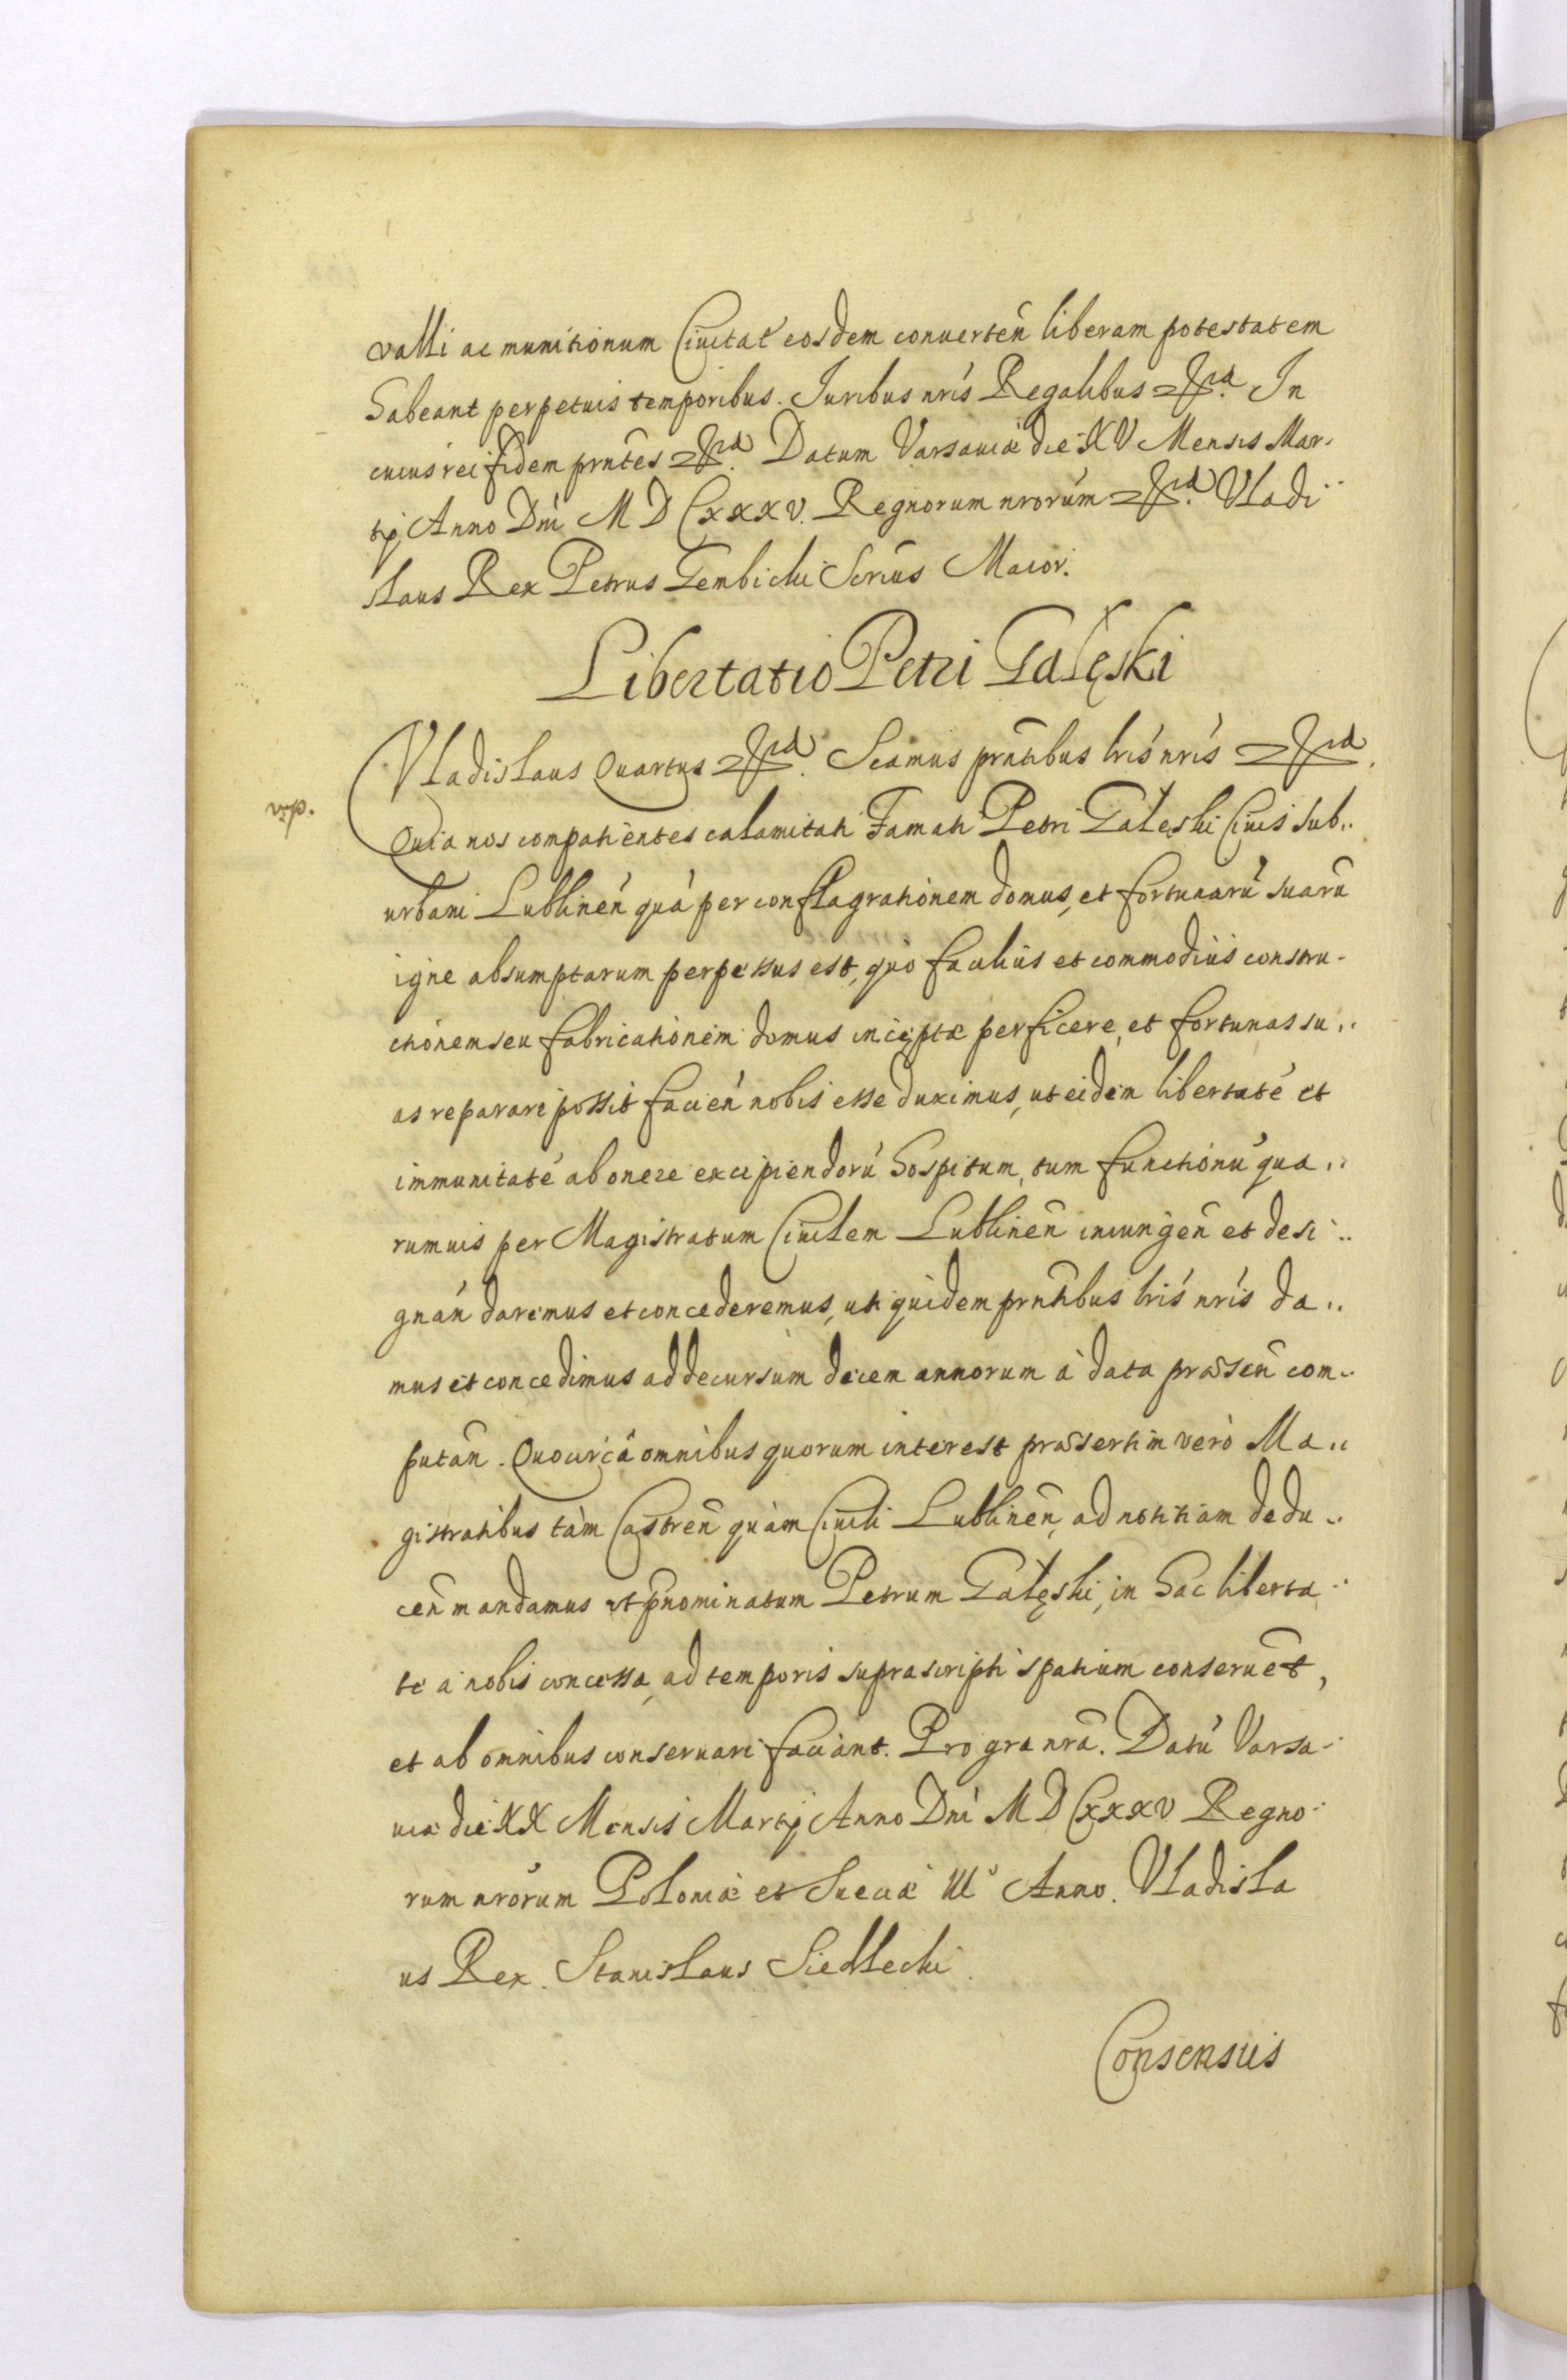 valli ac munitionum Ciuitat eosdem conuerteñ liberam potestatem
habeant perpetuis temporibus. Juribus nris Regalibus &ra. In
cuius rei fidem prñtes &ra. Datum Varsauiæ die XV Mensis Mar-
tij Anno Dni M D CXXXV. Regnorum nrorum &ra. Vladi-
slaus Rex Petrus Gembicki Scrius Maior.
Libertatio Petri Gałęski
Vladislaus Quartus &ra. Scamus prñtibus lris nris &ra.
Quia nos compatientes calamitati Famati Petri Gałęski Ciuis sub-
urbani Lublineñ quá per conflagrationem domus, et fortunarũ suarũ
igne absumptarum perpessus est, quò facilius et commodius constru-
ctionem seu fabricationem domus inceptæ perficere, et fortunas su-
as reparare possit facień nobis esse duximus, ut eidem libertaté et
immunitaté ab onere excipiendorũ hospitum, tum functionũ qua-
rumuis per Magistratum Ciuilem Lublineñ iniungeñ et desi-
gnań daremus et concederemus, uti quidem prñtibus lris nris da-
mus et concedimus ad decursum decem annorum á data præseñ com-
putañ. Quocirca omnibus quorum interest præsertim verò Ma-
gistratibus tàm Castreñ quàm Ciuili Lublineñ, ad notitiam dedu-
ceñ mandamus ut pñominatum Petrum Gałęski, in hac liberta-
te a nobis concessa, ad temporis suprascripti spatium conseruẽt,
et ab omnibus conseruari faciant. Pro gra nrã. Datũ Varsa-
uiæ die XX Mensis Martij Anno Dni M D CXXXV Regno-
rum nrorum Poloniæ et Sueciæ III° Anno. Vladisla
us Rex. Stanislaus Siedlecki
Consensus